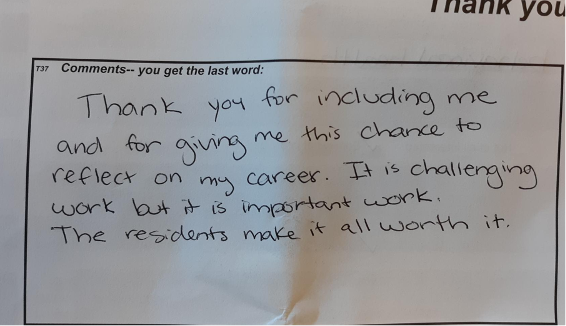 Thank you
T37 Comments-- you get the last word:
Thank you for including me
and for giving me this chance to
reflect on my career. It is challenging
work but it is important work.
The residents make it all worth it.